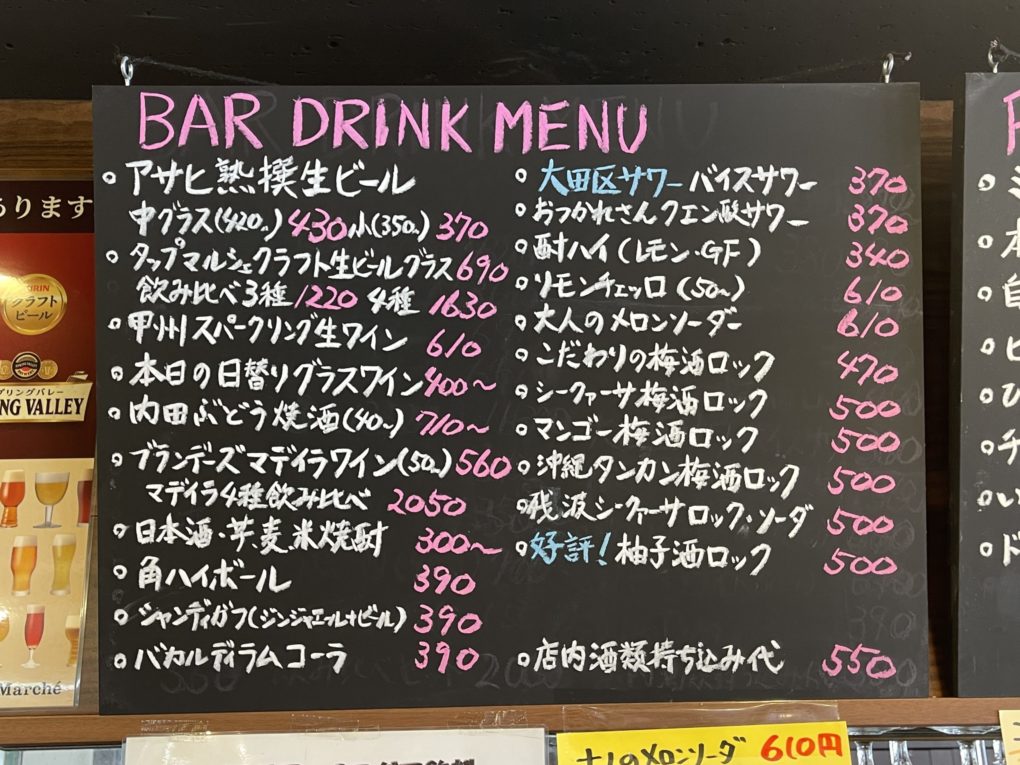 BAR DRINK MENU
アサヒ熟撰生ビール
中グラス(420㎖) 430 小(350㎖) 370
タップマルシェクラフト生ビールグラス 690
飲み比べ3種 1220 4種 1630
甲州スパークリング生ワイン 610
本日の日替りグラスワイン 400〜
内田ぶどう焼酒(40㎖) 710〜
ブランデーズマデイラワイン(50㎖) 560
マデイラ4種飲み比べ 2050
日本酒・芋、麦、米焼酎 300〜
角ハイボール 390
シャンディガフ(ジンジャエール+ビール) 390
バカルディラムコーラ 390
大田区サワー バイスサワー 370
おつかれさんクエン酸サワー 370
酎ハイ(レモン・GF) 340
リモンチェッロ(50㎖) 610
大人のメロンソーダー 610
こだわりの梅酒ロック 470
シークァーサ梅酒ロック 500
マンゴー梅酒ロック 500
沖縄タンカン梅酒ロック 500
残波シークァーサロック・ソーダ 500
好評！柚子酒ロック 500
店内酒類持ち込み代 550
あります
KIRIN
クラフト
ビール
プリングバレー
NG VALLEY
Marché
メロンソーダ 610円